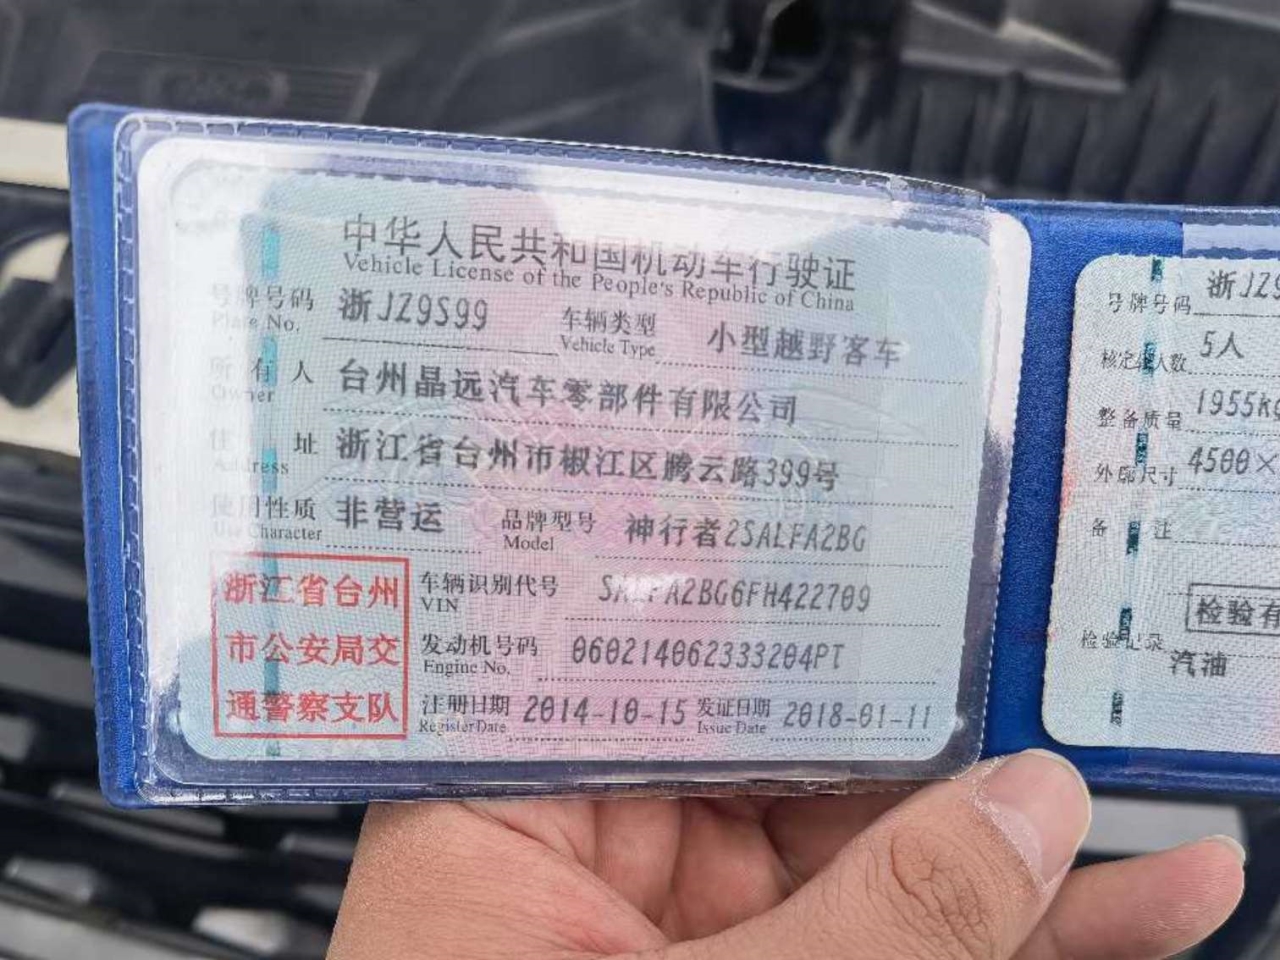 中华人民共和国机动车行驶证
Vehicle License of the People's Republic of China
号牌号码 浙JZ9S99 车辆类型 小型越野客车
Plate No. Vehicle Type
所有人 台州晶远汽车零部件有限公司
Owner
住址 浙江省台州市椒江区腾云路399号
Address
使用性质 非营运 品牌型号 神行者2SALFA2BG
Use Character Model
浙江省台州 车辆识别代号 SALFA2BG6FH422709
VIN
市公安局交 发动机号码 060214062333204PT
Engine No.
通警察支队 注册日期 2014-10-15 发证日期 2018-01-11
Register Date Issue Date
号牌号码 浙JZ9
核定载人数 5人
整备质量 1955kg
外廓尺寸 4500×
备注
检验有
检验记录
汽油